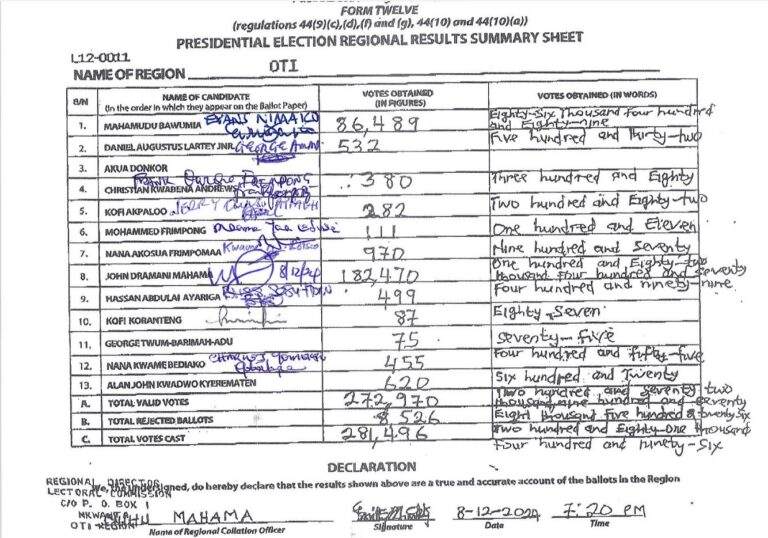 FORM TWELVE
(regulations 44(9)(c),(d),(f) and (g), 44(10) and 44(10)(a))
PRESIDENTIAL ELECTION REGIONAL RESULTS SUMMARY SHEET
L12-0011
NAME OF REGION OTI
S/N NAME OF CANDIDATE (In the order in which they appear on the Ballot Paper) VOTES OBTAINED (IN FIGURES) VOTES OBTAINED (IN WORDS)
1. MAHAMUDU BAWUMIA EVANS NIMAKO 86,489 Eighty-Six Thousand four hundred and Eighty-nine
2. DANIEL AUGUSTUS LARTEY JNR. GEORGE 532 Five hundred and Thirty-two
3. AKUA DONKOR
4. CHRISTIAN KWABENA ANDREWS 380 Three hundred and Eighty
5. KOFI AKPALOO JERRY 282 Two hundred and Eighty-two
6. MOHAMMED FRIMPONG 111 One hundred and Eleven
7. NANA AKOSUA FRIMPOMAA Kwame 970 Nine hundred and Seventy
8. JOHN DRAMANI MAHAMA 8/12/24 182,470 One hundred and Eighty-two thousand four hundred and seventy
9. HASSAN ABDULAI AYARIGA 499 Four hundred and ninety-nine
10. KOFI KORANTENG 87 Eighty-Seven
11. GEORGE TWUM-BARIMAH-ADU 75 Seventy-five
12. NANA KWAME BEDIAKO 455 Four hundred and fifty-five
13. ALAN JOHN KWADWO KYEREMATEN 620 Six hundred and Twenty
A. TOTAL VALID VOTES 272,970 Two hundred and seventy two thousand nine hundred and seventy
B. TOTAL REJECTED BALLOTS 8,526 Eight thousand five hundred & twenty six
C. TOTAL VOTES CAST 281,496 Two hundred and Eighty-One thousand four hundred and ninety-Six
DECLARATION
We, the undersigned, do hereby declare that the results shown above are a true and accurate account of the ballots in the Region
REGIONAL DIRECTOR
LECTORAL COMMISSION
C/O P. O. BOX 1
NKWANTA
OTI REGION
MAHAMA 8-12-2024 7:20 PM
Name of Regional Collation Officer Signature Date Time